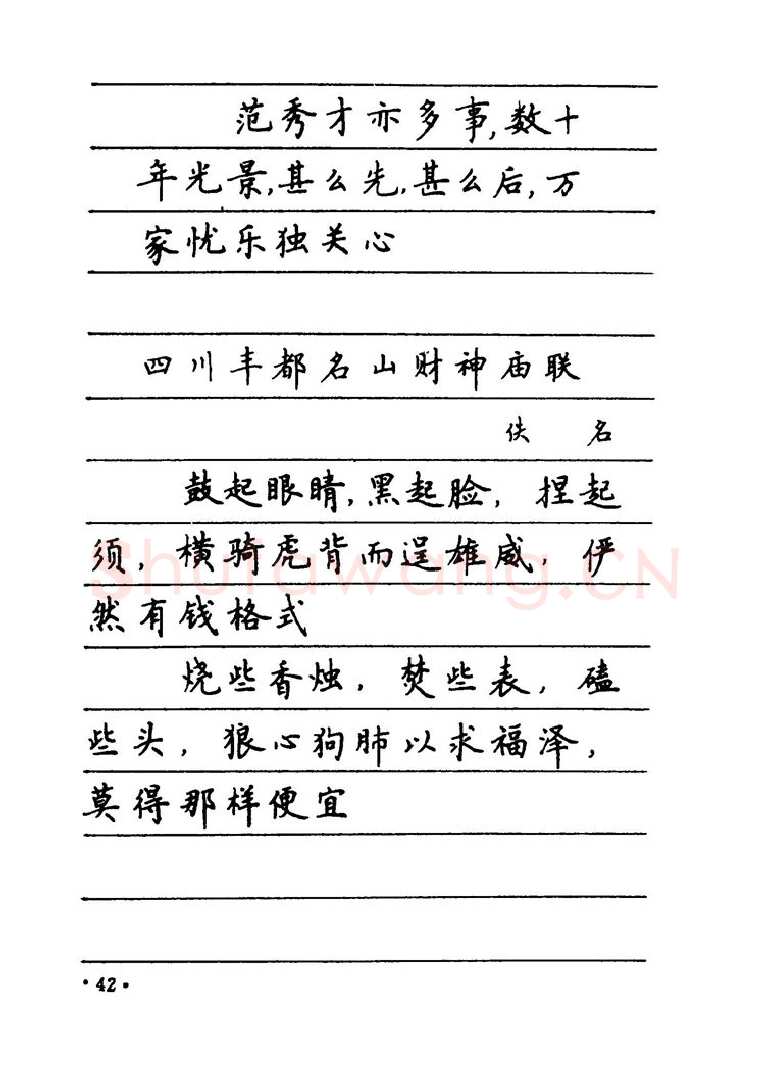 范秀才亦多事,数十
年光景,甚么先,甚么后,万
家忧乐独关心
四川丰都名山财神庙联
佚 名
鼓起眼睛,黑起脸,捏起
须,横骑虎背而逞雄威,俨
然有钱格式
烧些香烛,焚些表,磕
些头,狼心狗肺以求福泽,
莫得那样便宜
Shufawang.CN
·42·